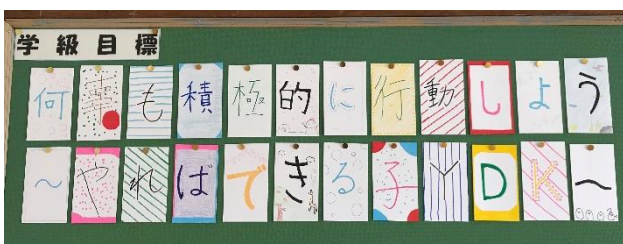 学級目標
何事も積極的に行動しよう
～やればできる子YDK～